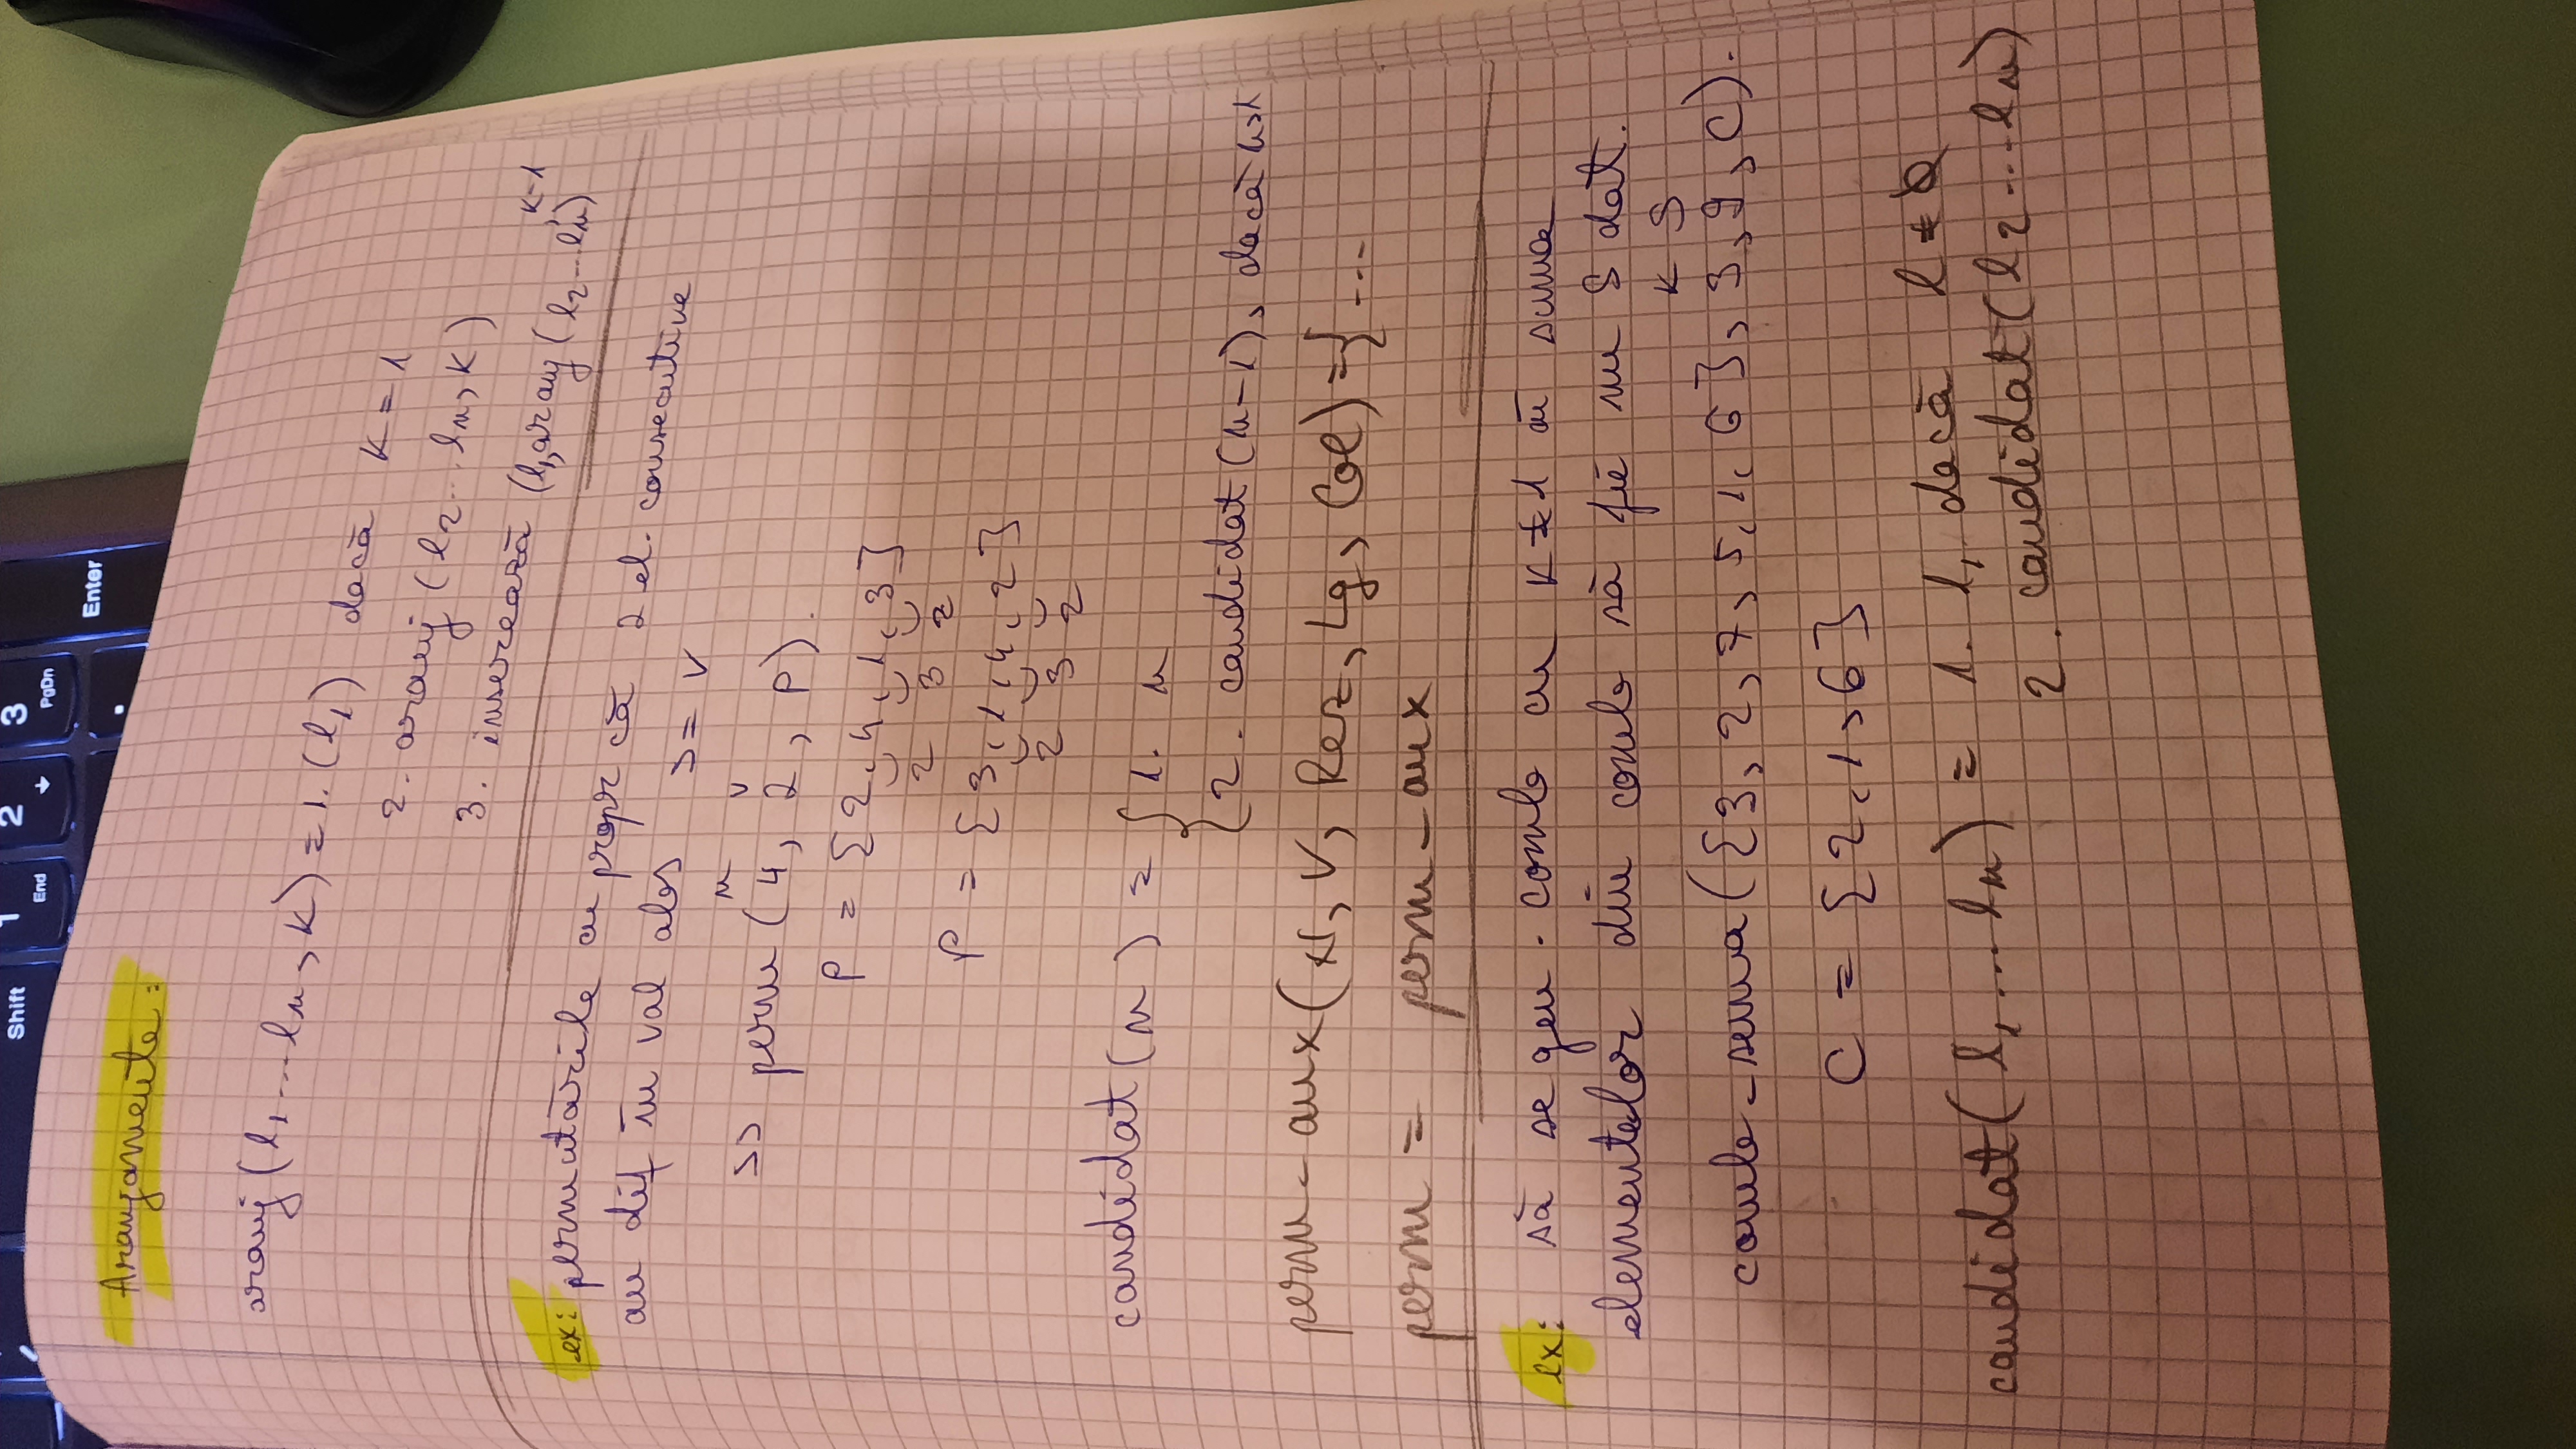 Shift
1
End
2
3
PgDn
Enter
Aranjamente:
aranj(l1...ln, k) = 1. (l1) dacă k = 1
2. aranj (l2...ln, k)
3. inserează (l1, aranj (l2...ln), k-1
ex: permutările cu propr că 2 el. consecutive
au dif în val abs >= v
n v
>> perm (4, 2, P).
P = {2, 4, 1, 3}
2 3 2
P = {3, 1, 4, 2}
2 3 2
candidat(n) = { 1. n
2. candidat(n-1), dacă n>1
perm-aux(N, V, Rez, Lg, Col) = {...
perm = perm-aux
ex: să se gen. comb cu k ≠ 1 aî suma
elementelor din comb să fie nu S dat.
K S
comb-suma({3, 2, 7, 5, 1, 6}, 3, 9, C).
C = {2, 1, 6}
candidat(l1...ln) = 1. l1 dacă l ≠ Ø
2. candidat(l2...ln)